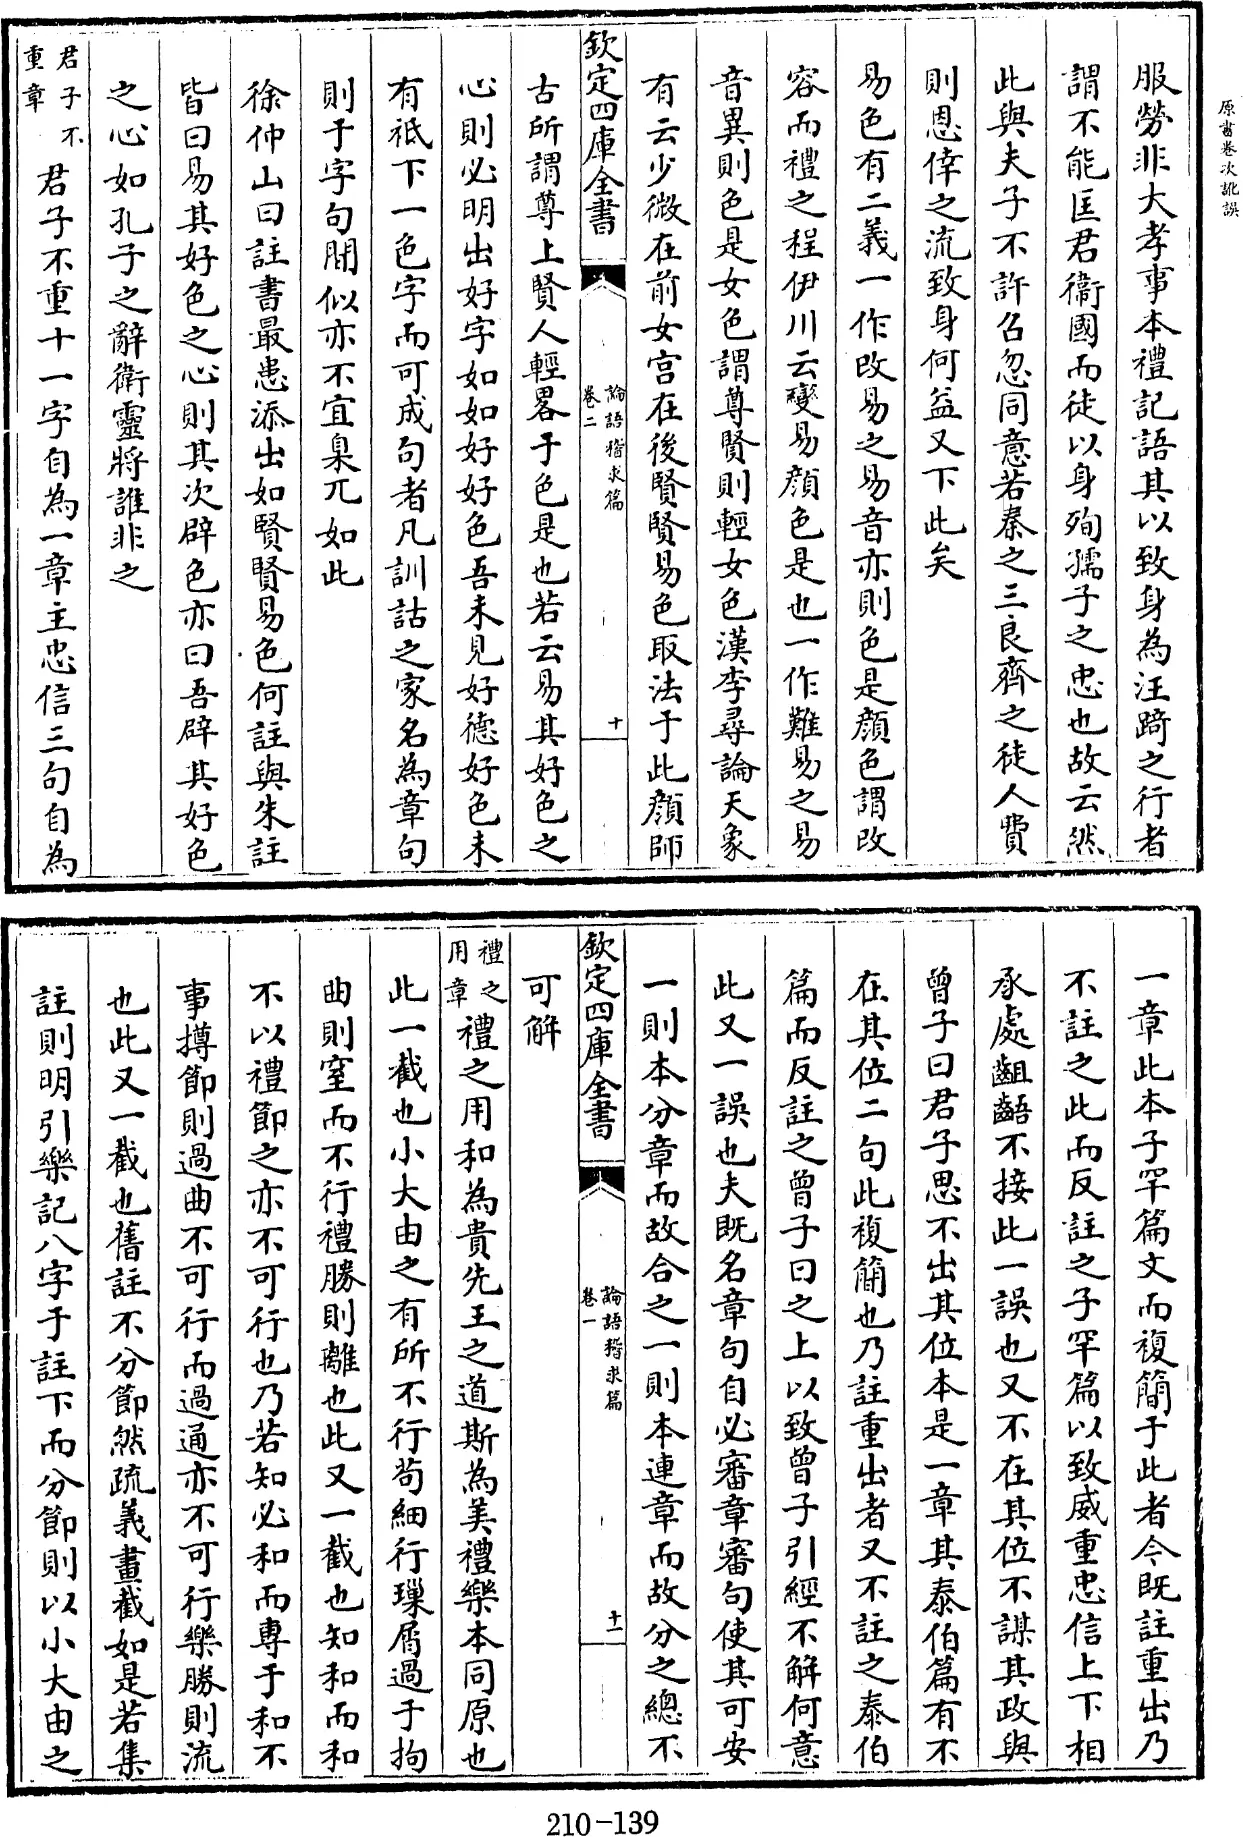 原書卷次訛誤
服勞非大孝事本禮記語其以致身為汪踦之行者
謂不能匡君衞國而徒以身殉孺子之忠也故云然
此與夫子不許召忽同意若秦之三良齊之徒人費
則恩倖之流致身何益又下此矣
易色有二義一作改易之易音亦則色是顔色謂改
容而禮之程伊川云變易顔色是也一作難易之易
音異則色是女色謂尊賢則輕女色漢李尋論天象
有云少微在前女宮在後賢賢易色取法于此顔師
欽定四庫全書
論語稽求篇
卷二
十
古所謂尊上賢人輕畧于色是也若云易其好色之
心則必明出好字如如好好色吾未見好德好色未
有祇下一色字而可成句者凡訓詁之家名為章句
則于字句間似亦不宜臬兀如此
徐仲山曰註書最患添出如賢賢易色何註與朱註
皆曰易其好色之心則其次辟色亦曰吾辟其好色
之心如孔子之辭衛靈將誰非之
君子不
重章
君子不重十一字自為一章主忠信三句自為
一章此本子罕篇文而複簡于此者今既註重出乃
不註之此而反註之子罕篇以致威重忠信上下相
承處齟齬不接此一誤也又不在其位不謀其政與
曾子曰君子思不出其位本是一章其泰伯篇有不
在其位二句此複簡也乃註重出者又不註之泰伯
篇而反註之曾子曰之上以致曾子引經不解何意
此又一誤也夫既名章句自必審章審句使其可安
一則本分章而故合之一則本連章而故分之總不
欽定四庫全書
論語稽求篇
卷一
十一
可解
禮之
用章
禮之用和為貴先王之道斯為美禮樂本同原也
此一截也小大由之有所不行苟細行璅屑過于拘
曲則窒而不行禮勝則離也此又一截也知和而和
不以禮節之亦不可行也乃若知必和而專于和不
事撙節則過曲不可行而過通亦不可行樂勝則流
也此又一截也舊註不分節然疏義畫截如是若集
註則明引樂記八字于註下而分節則以小大由之
210-139